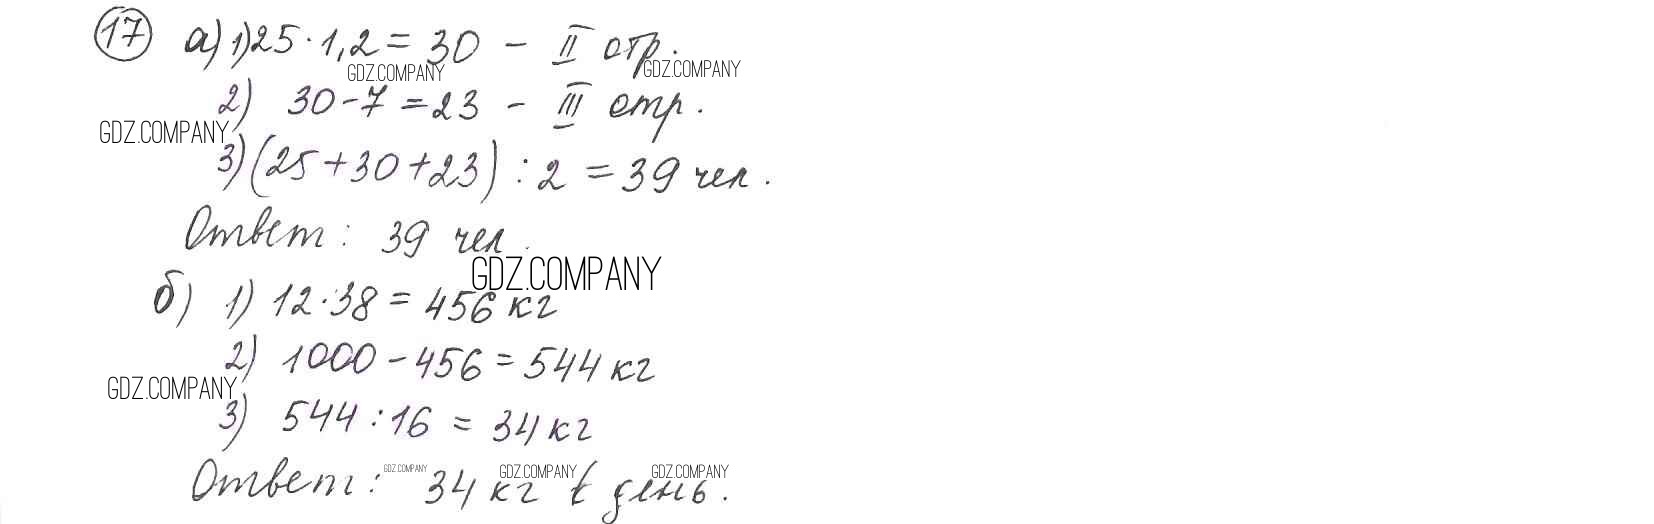 17 а) 1) 25 · 1,2 = 30 - II стр.
GDZ.COMPANY GDZ.COMPANY
2) 30 - 7 = 23 - III стр.
GDZ.COMPANY
3) (25 + 30 + 23) : 2 = 39 чел.
Ответ: 39 чел.
GDZ.COMPANY
б) 1) 12 · 38 = 456 кг
2) 1000 - 456 = 544 кг
GDZ.COMPANY
3) 544 : 16 = 34 кг
GDZ.COMPANY GDZ.COMPANY GDZ.COMPANY
Ответ: 34 кг в день.